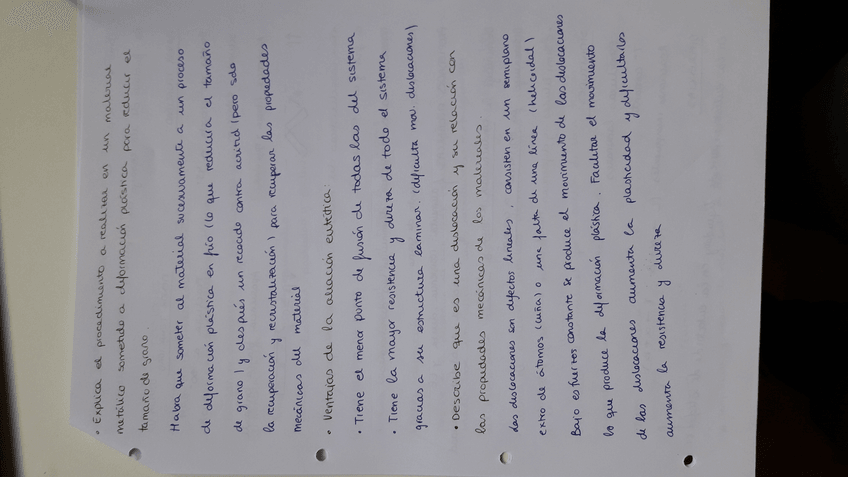 • Explica el procedimiento a realizar en un material
metálico sometido a deformación plástica para reducir el
tamaño de grano.
Habrá que someter al material sucesivamente a un proceso
de deformación plástica en frío (lo que reducirá el tamaño
de grano) y después un recocido contra acritud (pero solo
la recuperación y recristalización) para recuperar las propiedades
mecánicas del material
• Ventajas de la aleación eutéctica.
• Tiene el menor punto de fusión de todas las del sistema
• Tiene la mayor resistencia y dureza de todo el sistema
gracias a su estructura laminar. (dificulta mov. dislocaciones)
• Describe que es una dislocación y su relación con
las propiedades mecánicas de los materiales.
Las dislocaciones son defectos lineales, consisten en un semiplano
extra de átomos (cuña) o una falta de una línea (helicoidal)
Bajo esfuerzos constante se produce el movimiento de las dislocaciones
lo que produce la deformación plástica. Facilitar el movimiento
de las dislocaciones aumenta la plasticidad y dificultarlos
aumenta la resistencia y dureza